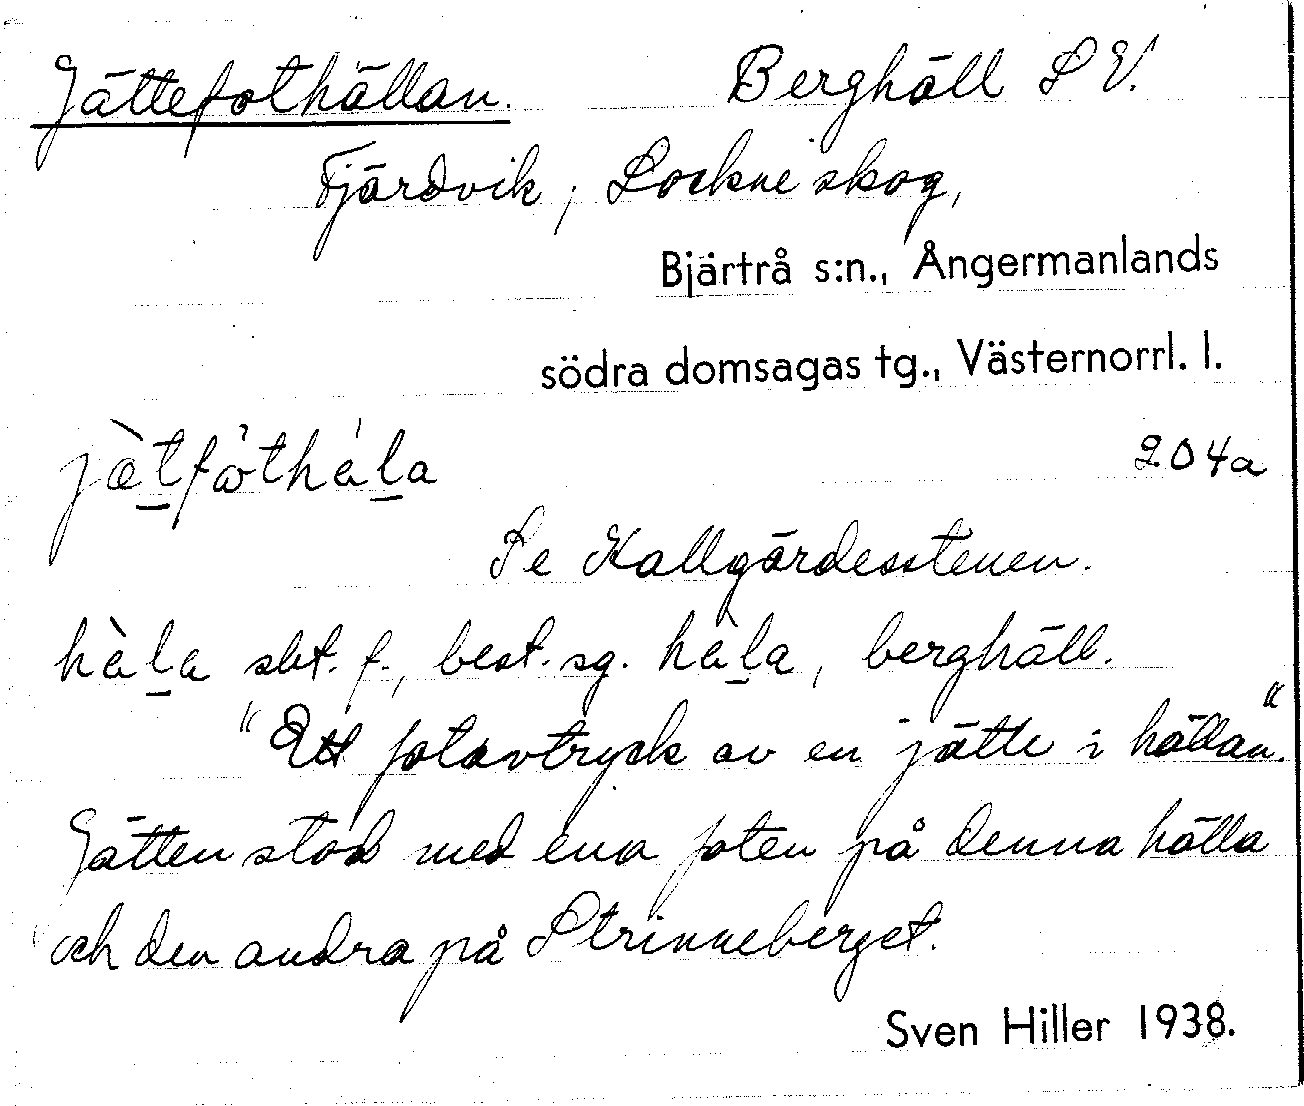 Jättefothällan. Berghäll S V.
Fjärdvik, Lockne skog,
Bjärtrå s:n., Ångermanlands
södra domsagas tg., Västernorrl. l.
jæ̀tfò̤thàla 204a
Se Kallgärdesstenen.
hàla sbt. f., best. sg. hàla, berghäll.
"Ett fotavtryck av en jätte i hällan."
Jätten stod med ena foten på denna hälla
och den andra på Strinneberget.
Sven Hiller 1938.